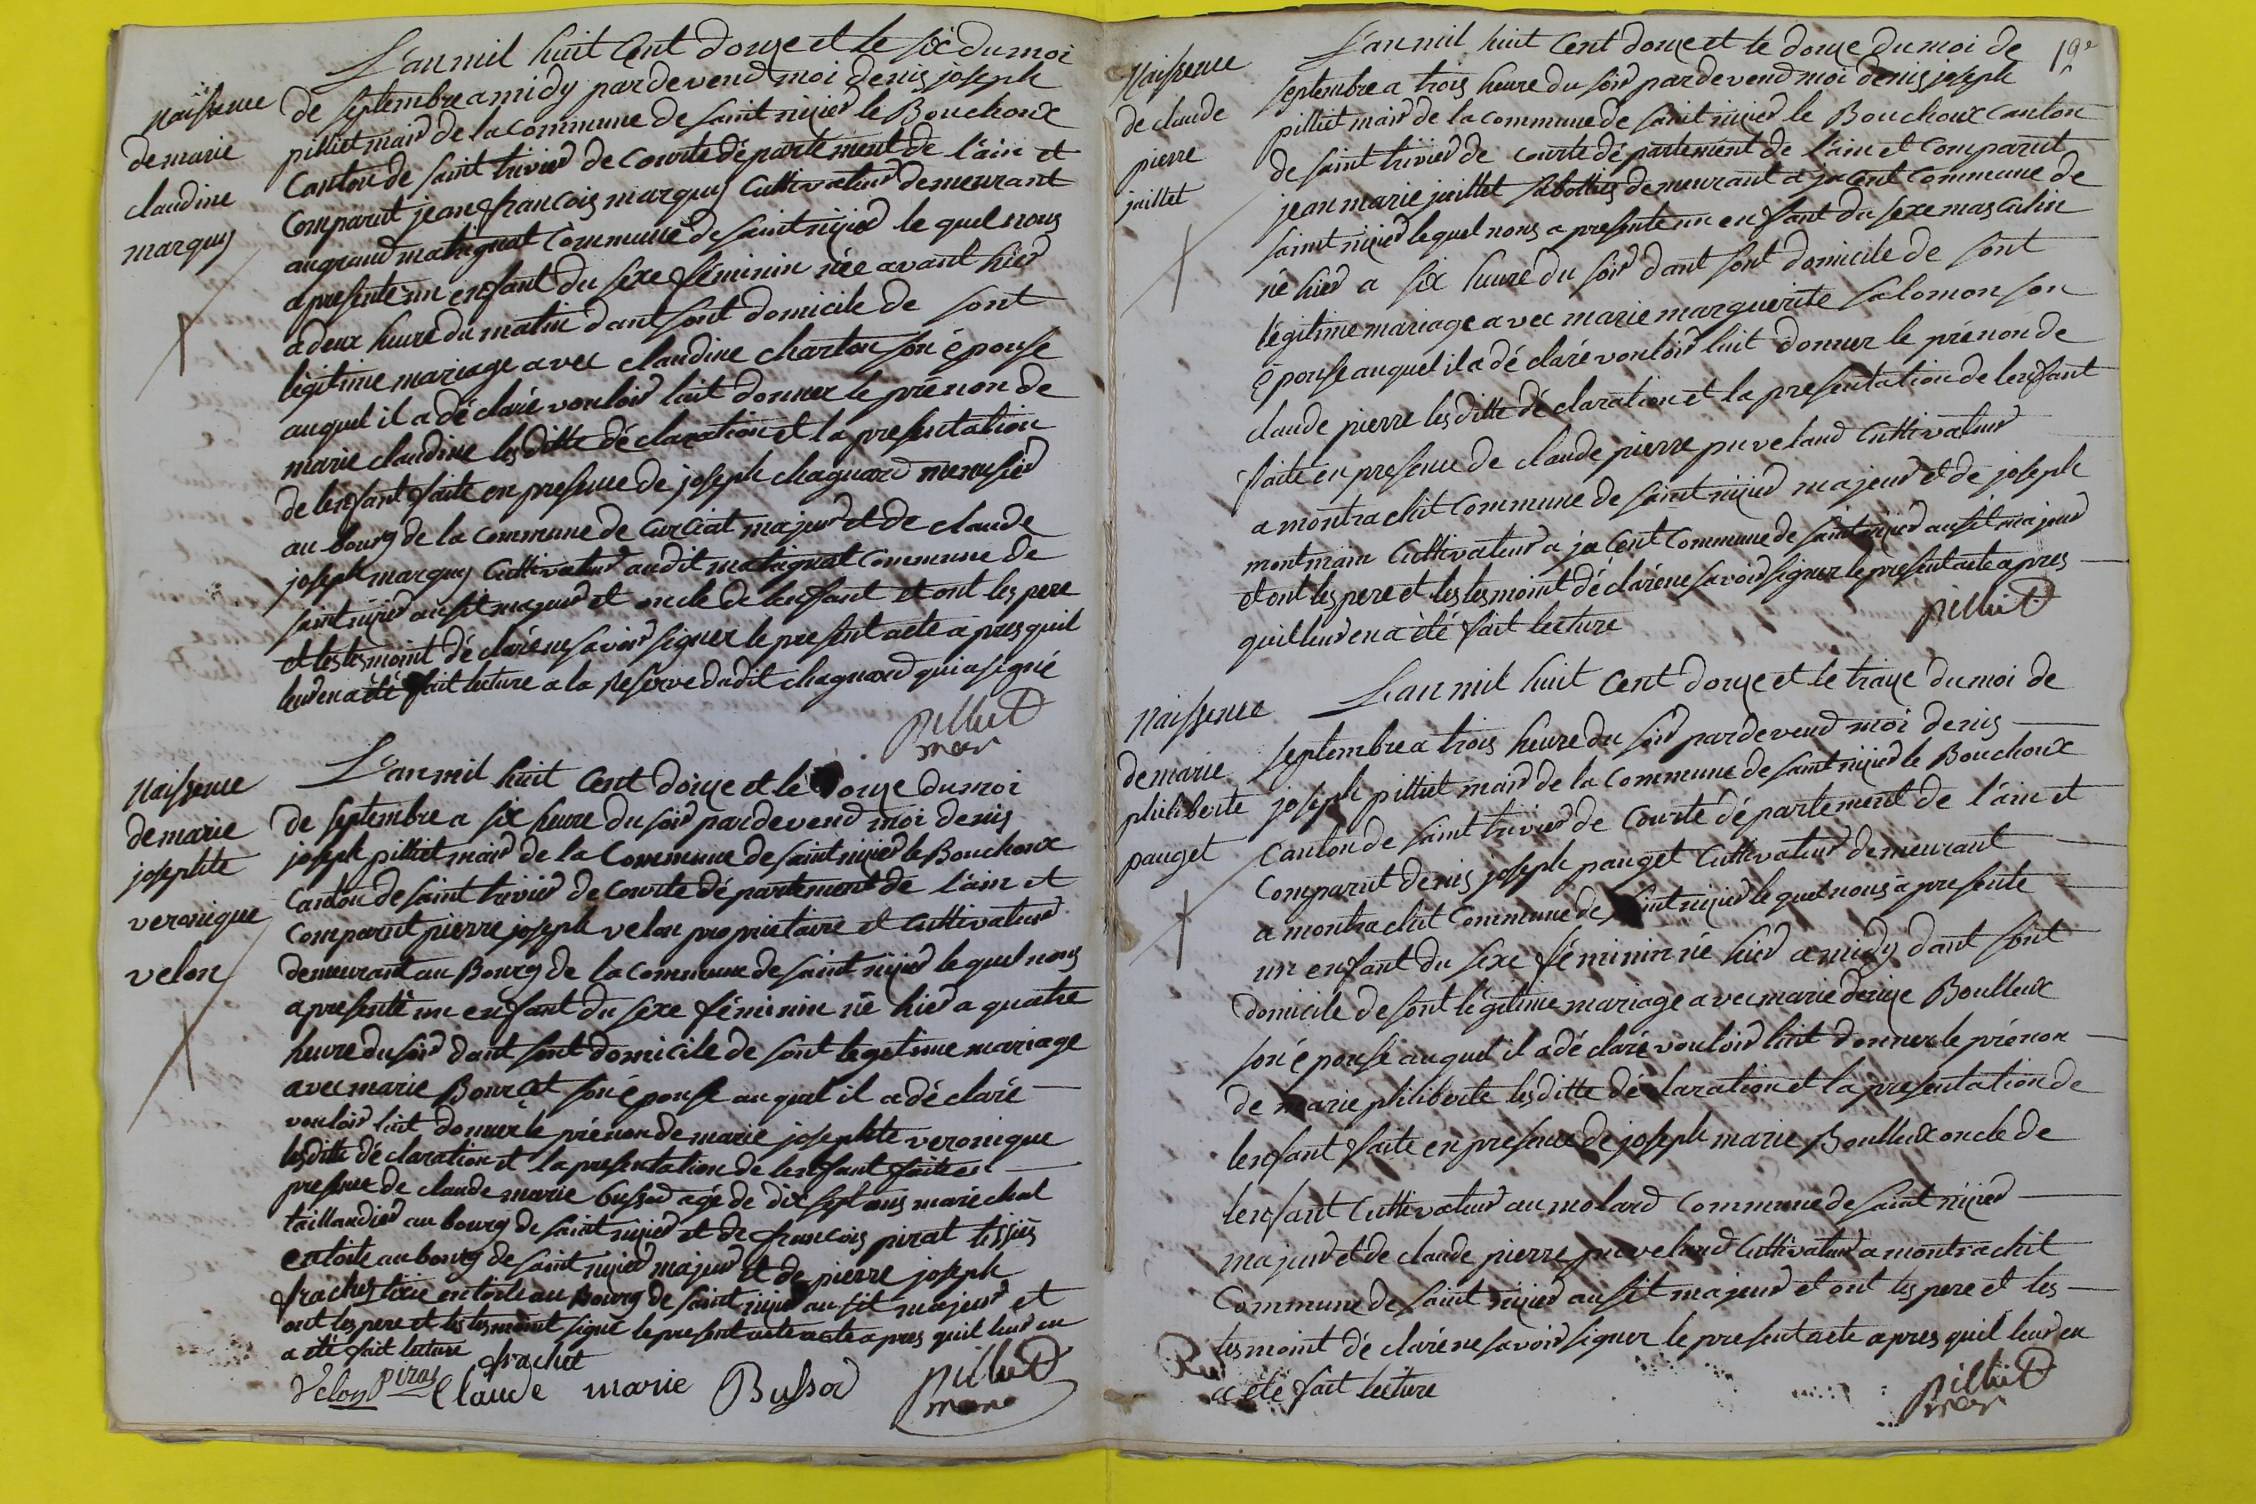 Naissence
de marie
claudine
marquis
L'an mil huit Cent douze et le six du moi
de septembre a midy pardevend moi denis joseph
pilliet maire de la commune de saint nizier le Bouchoux
Canton de saint trivier de Courte département de l'ain et
Comparut jean françois marquis Cultivateur demeurant
au grand matignat Commune de saint nizier le quel nous
a presente un enfant du sexe féminin née avant hier
a deux heure du matin dant sont domicile de sont
légitime mariage avec claudine charton son épouse
auquel il a déclaré vouloir luit donner le prénon de
marie claudine lesditte déclaration et la presentation
de lenfant faite en presence de joseph chagnard menusier
au bourg de la commune de Curciat majeur et de claude
joseph marquis Cultivateur audit matignat Commune de
saint nizier ausit majeur et oncle de lenfant et ont les pere
et les tesmoint déclaré ne savoir signer le present acte a pres quil
leur en a été fait lecture a la Reserve dudit chagnard qui a signé
pilliet
mar
Naissence
de marie
josephte
veronique
velon
L'an mil huit Cent douze et le douze du moi
de septembre a six heure du soir pardevend moi denis
joseph pilliet maire de la Commune de saint nizier le Bouchoux
Canton de saint trivier de Courte département de l'ain et
Comparut pierre joseph velon proprietaire et Cultivateur
demeurant au Bourg de la commune de saint nizier le quel nous
a presenté un enfant du sexe féminin né hier a quatre
heure du soir dant sont domicile de sont legitime mariage
avec marie Bourcet son épouse au quel il a déclaré
vouloir luit donner le prénon de marie josephte veronique
lesditte déclaration et la presentation de lenfant faite en
presence de claude marie bussod agé de dix sept ans marechal
taillandier au bourg de saint nizier et de françois pirat tissier
en toile au bourg de saint nizier majeur et de pierre joseph
frachet tixie en toile au Bourg de saint nizier au sit majeur et
ont les pere et les tesmoint signé le present acte acte a pres quil leur en
a été fait lecture
frachet
Velon pirat Claude marie Bussod pilliet
mare
19e
Naissence
de claude
pierre
juillet
L'an mil huit Cent douze et le douze du moi de
septembre a trois heure du soir pardevend moi denis joseph
pilliet maire de la commune de saint nizier le Bouchoux Canton
de saint trivier de Courte département de l'ain et Comparut
jean marie juillet Sabottier demeurant a jacent Commune de
saint nizier lequel nous a presente un enfant du sexe masculin
né hier a six heure du soir dant sont domicile de sont
légitime mariage avec marie marguerite salomon son
épouse auquel il a déclaré vouloir luit donner le prénon de
claude pierre lesditte déclaration et la presentation de lenfant
faite en presence de claude pierre puveland Cultivateur
a montrachit Commune de saint nizier majeur et de joseph
montmain Cultivateur a jacent Commune de saint nizier ausit majeur
et ont les pere et les tesmoint déclaré ne savoir signer le present acte apres
quil leur en a été fait lecture
pilliet
Naissence
de marie
philiberte
pauget
L'an mil huit Cent douze et le traize du moi de
septembre a trois heure du soir pardevend moi denis
joseph pilliet maire de la Commune de saint nizier le Bouchoux
Canton de saint trivier de Courte département de l'ain et
Comparut denis joseph pauget Cultivateur demeurant
a montrachit Commune de saint nizier lequel nous a presente
un enfant du sexe féminin né hier a midy dant sont
domicile de sont légitime mariage avec marie denise Boulleux
son épouse auquel il a déclaré vouloir luit donner le prénon
de marie philiberte lesditte déclaration et la presentation de
lenfant faite en presence de joseph marie Boulleux oncle de
lenfant Cultivateur au molard Commune de saint nizier
majeur et de claude pierre puveland Cultivateur a montrachit
Commune de saint nizier ausit majeur et ont les pere et les
tesmoint déclaré ne savoir signer le present acte apres quil leur en
a été fait lecture
pilliet
mar